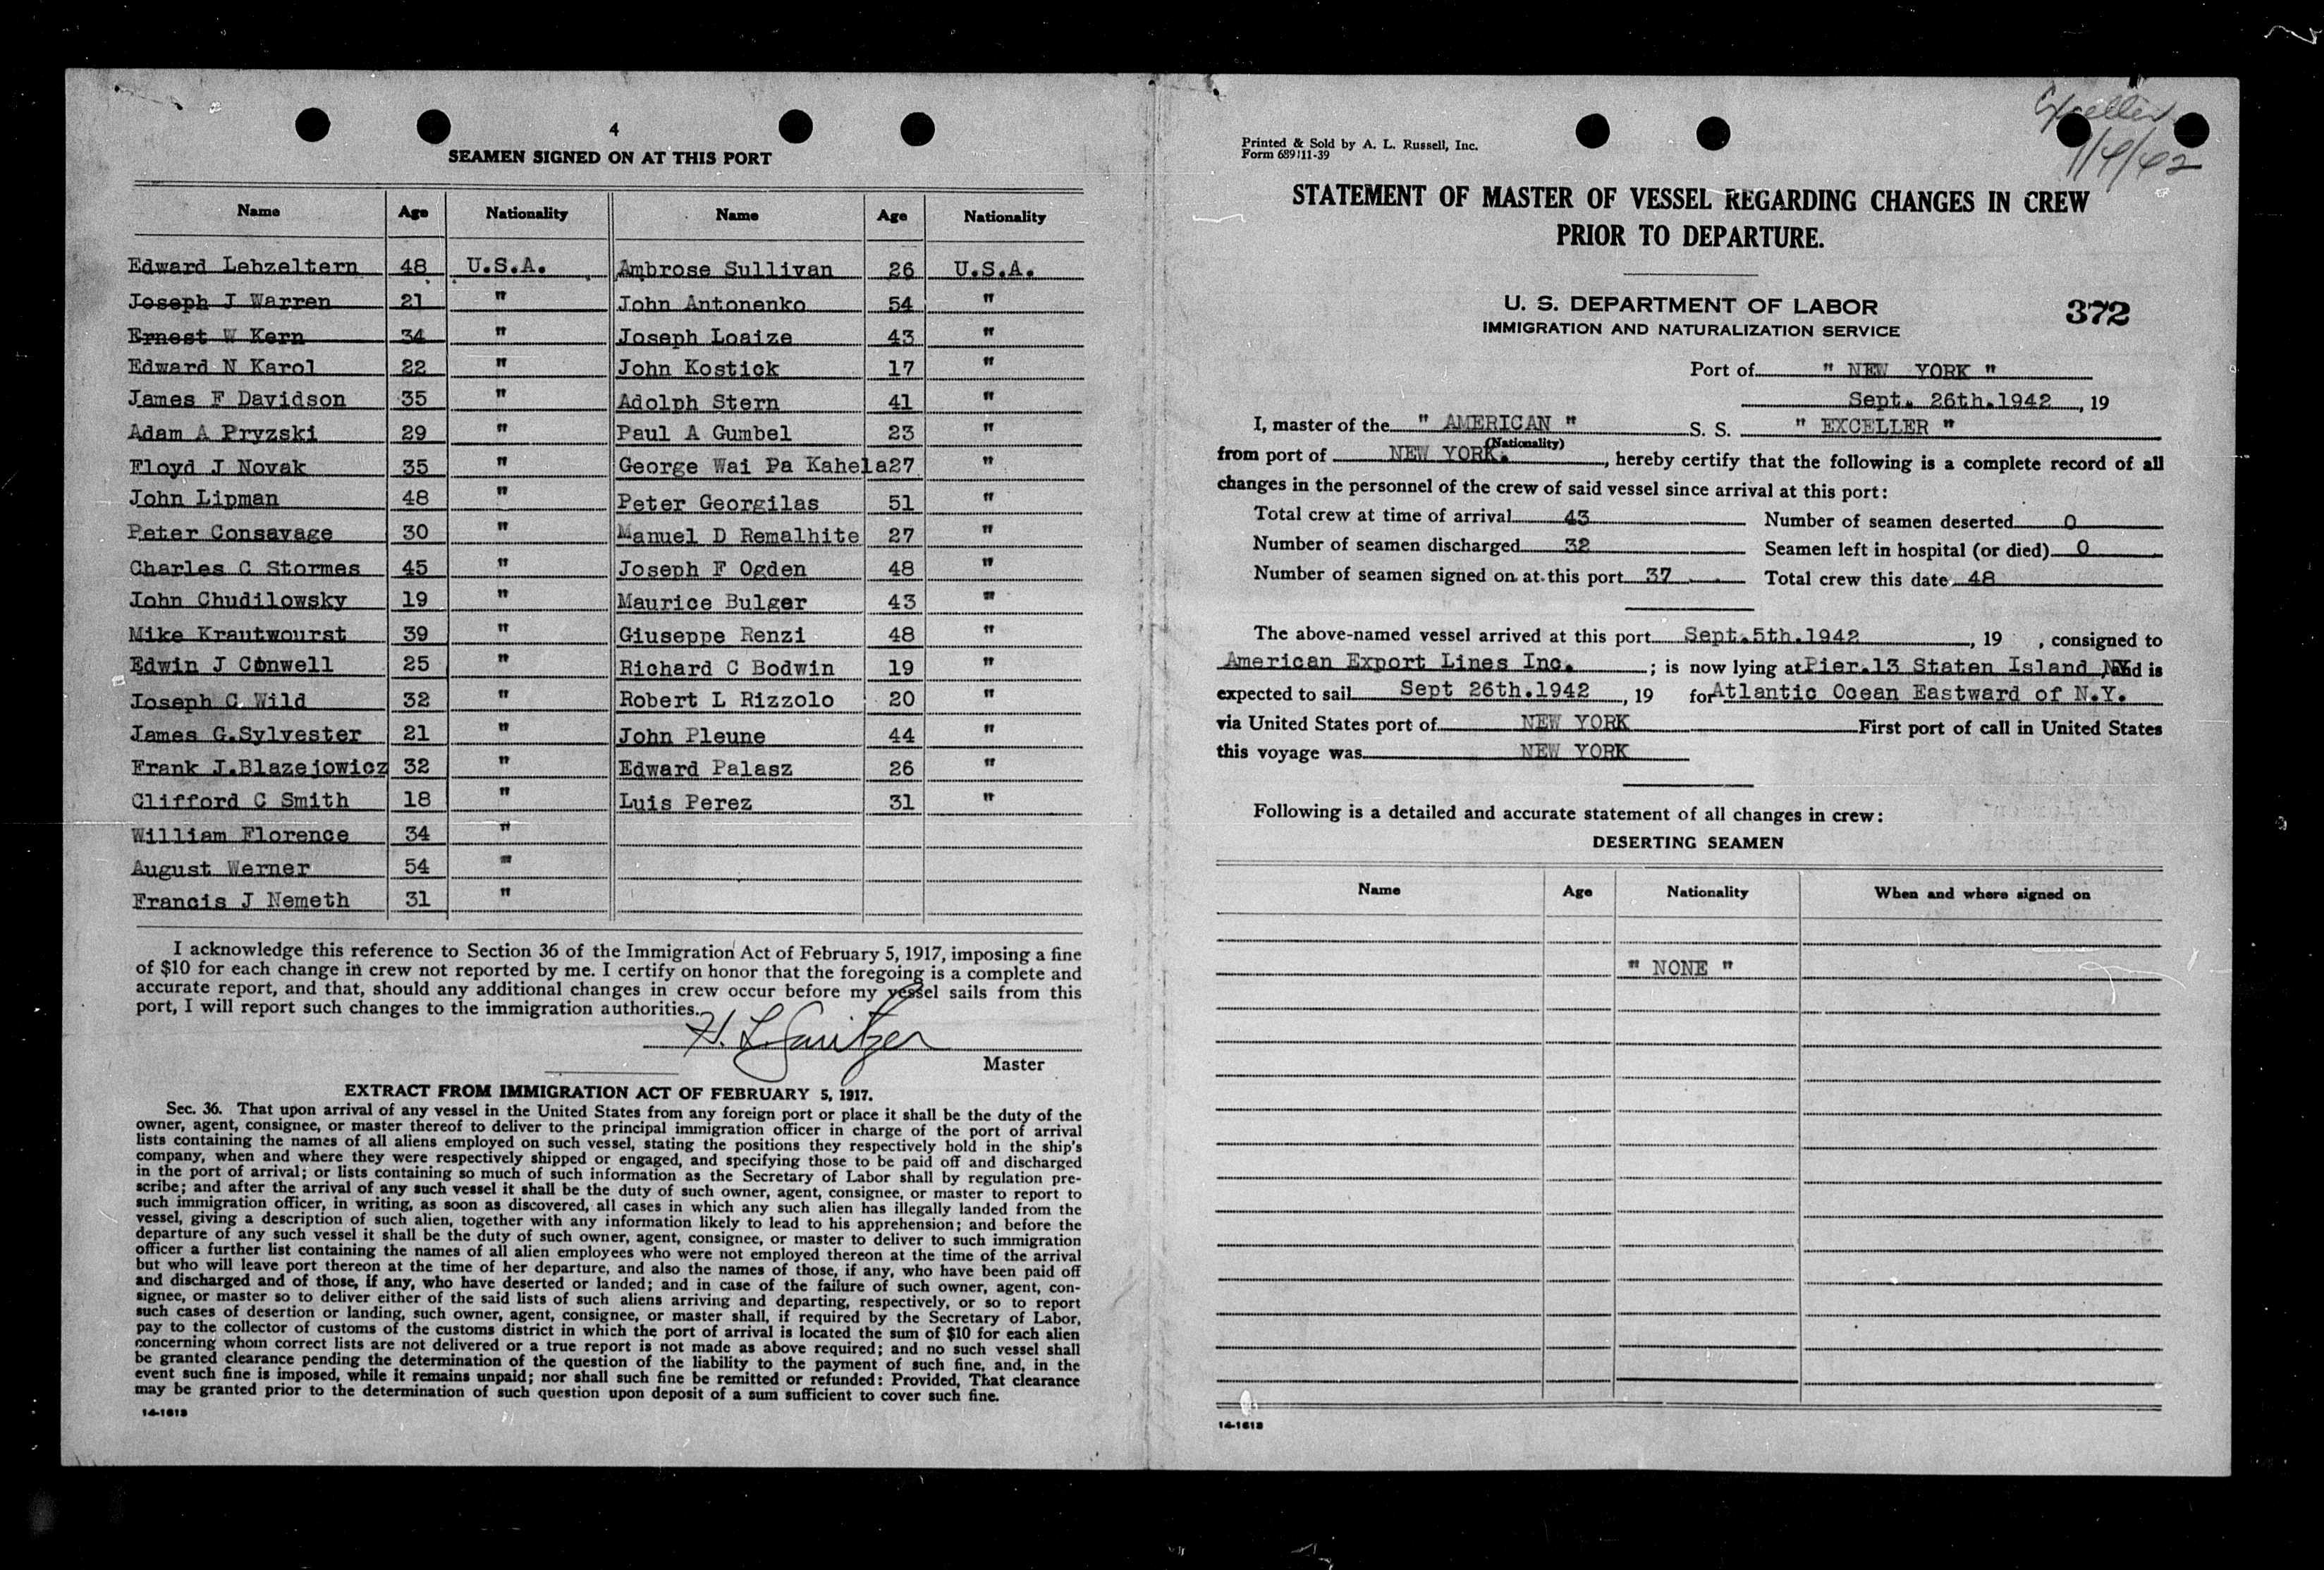 4
SEAMEN SIGNED ON AT THIS PORT
Name Age Nationality Name Age Nationality
Edward Lehzeltern 48 U.S.A. Ambrose Sullivan 26 U.S.A.
Joseph J Warren 21 " John Antonenko 54 "
Ernest W Kern 34 " Joseph Loaize 43 "
Edward N Karol 22 " John Kostick 17 "
James F Davidson 35 " Adolph Stern 41 "
Adam A Pryzski 29 " Paul A Gumbel 23 "
Floyd J Novak 35 " George Wai Pa Kahela 27 "
John Lipman 48 " Peter Georgilas 51 "
Peter Consavage 30 " Manuel D Remalhite 27 "
Charles C Stormes 45 " Joseph F Ogden 48 "
John Chudilowsky 19 " Maurice Bulger 43 "
Mike Krautwourst 39 " Giuseppe Renzi 48 "
Edwin J Conwell 25 " Richard C Bodwin 19 "
Joseph C Wild 32 " Robert L Rizzolo 20 "
James G.Sylvester 21 " John Pleune 44 "
Frank J.Blazejowicz 32 " Edward Palasz 26 "
Clifford C Smith 18 " Luis Perez 31 "
William Florence 34 "
August Werner 54 "
Francis J Nemeth 31 "
I acknowledge this reference to Section 36 of the Immigration Act of February 5, 1917, imposing a fine
of $10 for each change in crew not reported by me. I certify on honor that the foregoing is a complete and
accurate report, and that, should any additional changes in crew occur before my vessel sails from this
port, I will report such changes to the immigration authorities.
H. L.
Master
EXTRACT FROM IMMIGRATION ACT OF FEBRUARY 5, 1917.
Sec. 36. That upon arrival of any vessel in the United States from any foreign port or place it shall be the duty of the
owner, agent, consignee, or master thereof to deliver to the principal immigration officer in charge of the port of arrival
lists containing the names of all aliens employed on such vessel, stating the positions they respectively hold in the ship's
company, when and where they were respectively shipped or engaged, and specifying those to be paid off and discharged
in the port of arrival; or lists containing so much of such information as the Secretary of Labor shall by regulation pre-
scribe; and after the arrival of any such vessel it shall be the duty of such owner, agent, consignee, or master to report to
such immigration officer, in writing, as soon as discovered, all cases in which any such alien has illegally landed from the
vessel, giving a description of such alien, together with any information likely to lead to his apprehension; and before the
departure of any such vessel it shall be the duty of such owner, agent, consignee, or master to deliver to such immigration
officer a further list containing the names of all alien employees who were not employed thereon at the time of the arrival
but who will leave port thereon at the time of her departure, and also the names of those, if any, who have been paid off
and discharged and of those, if any, who have deserted or landed; and in case of the failure of such owner, agent, con-
signee, or master so to deliver either of the said lists of such aliens arriving and departing, respectively, or so to report
such cases of desertion or landing, such owner, agent, consignee, or master shall, if required by the Secretary of Labor,
pay to the collector of customs of the customs district in which the port of arrival is located the sum of $10 for each alien
concerning whom correct lists are not delivered or a true report is not made as above required; and no such vessel shall
be granted clearance pending the determination of the question of the liability to the payment of such fine, and, in the
event such fine is imposed, while it remains unpaid; nor shall such fine be remitted or refunded: Provided, That clearance
may be granted prior to the determination of such question upon deposit of a sum sufficient to cover such fine.
14-1613
Exceller
Printed & Sold by A. L. Russell, Inc.
Form 689 11-39
STATEMENT OF MASTER OF VESSEL REGARDING CHANGES IN CREW
PRIOR TO DEPARTURE.
U. S. DEPARTMENT OF LABOR 372
IMMIGRATION AND NATURALIZATION SERVICE
Port of " NEW YORK "
Sept. 26th.1942 , 19
I, master of the " AMERICAN " S. S. " EXCELLER "
(Nationality)
from port of NEW YORK. , hereby certify that the following is a complete record of all
changes in the personnel of the crew of said vessel since arrival at this port:
Total crew at time of arrival 43 Number of seamen deserted 0
Number of seamen discharged 32 Seamen left in hospital (or died) 0
Number of seamen signed on at this port 37 Total crew this date 48
The above-named vessel arrived at this port Sept.5th.1942 , 19 , consigned to
American Export Lines Inc. ; is now lying at Pier.13 Staten Island NY and is
expected to sail Sept 26th.1942 , 19 for Atlantic Ocean Eastward of N.Y.
via United States port of NEW YORK First port of call in United States
this voyage was NEW YORK
Following is a detailed and accurate statement of all changes in crew:
DESERTING SEAMEN
Name Age Nationality When and where signed on
" NONE "
14-1613